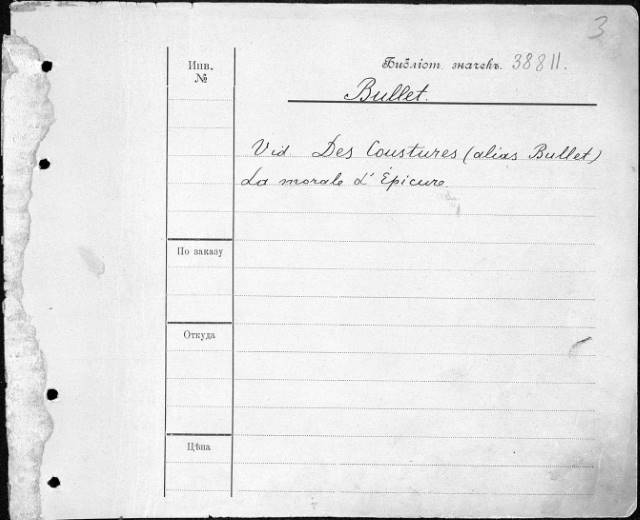 3
Инв.
№
Библіот. значекъ. 38811.
Bullet.
Vid Des Coustures (alias Bullet)
La morale d'Epicure
По заказу
Откуда
Цѣна